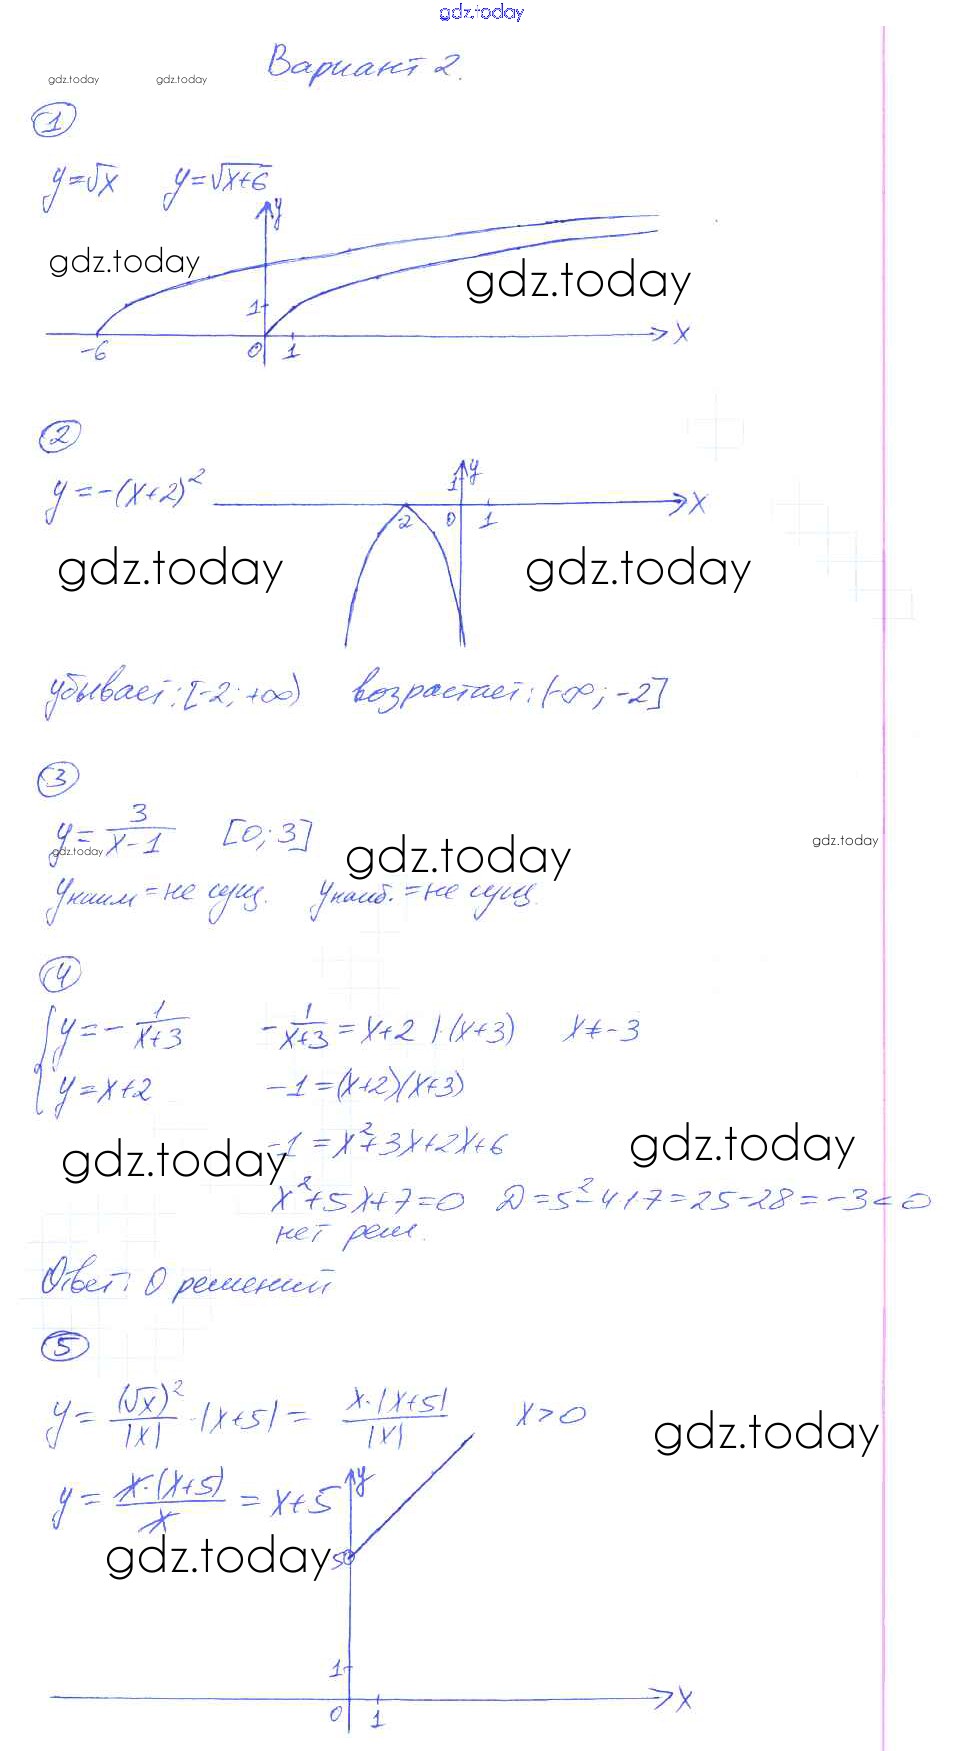 gdz.today
Вариант 2.
gdz.today gdz.today
1
y=√x y=√x+6
y
gdz.today gdz.today
1
-6 0 1 x
2
y=-(x+2)²
y
1
-2 0 1 x
gdz.today gdz.today
убывает: [-2; +∞) возрастает: (-∞; -2]
3
y= 3/(x-1) [0; 3]
gdz.today gdz.today gdz.today
yнаим = не сущ. yнаиб. = не сущ.
4
{ y=- 1/(x+3) - 1/(x+3) = x+2 |·(x+3) x≠-3
y=x+2 -1=(x+2)(x+3)
-1=x²+3x+2x+6
gdz.today gdz.today
x²+5x+7=0 D=5²-4·1·7=25-28=-3<0
нет реш.
Ответ: 0 решений
5
y= (√x)²/|x| · |x+5| = x·|x+5|/|x| x>0
gdz.today
y= x·(x+5)/x = x+5
y
gdz.today
5
1
0 1 x